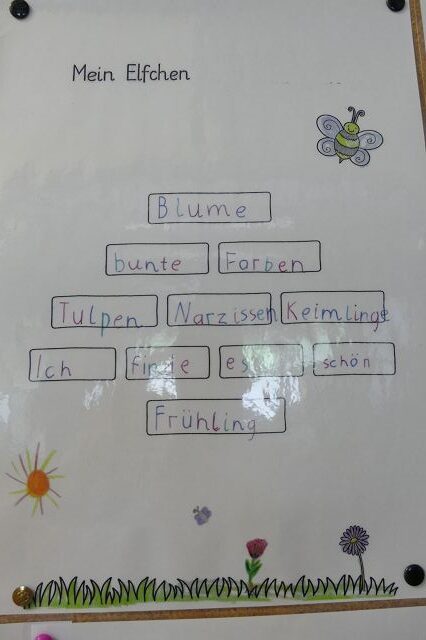 Mein Elfchen
Blume
bunte Farben
Tulpen Narzissen Keimlinge
Ich finde es schön
Frühling